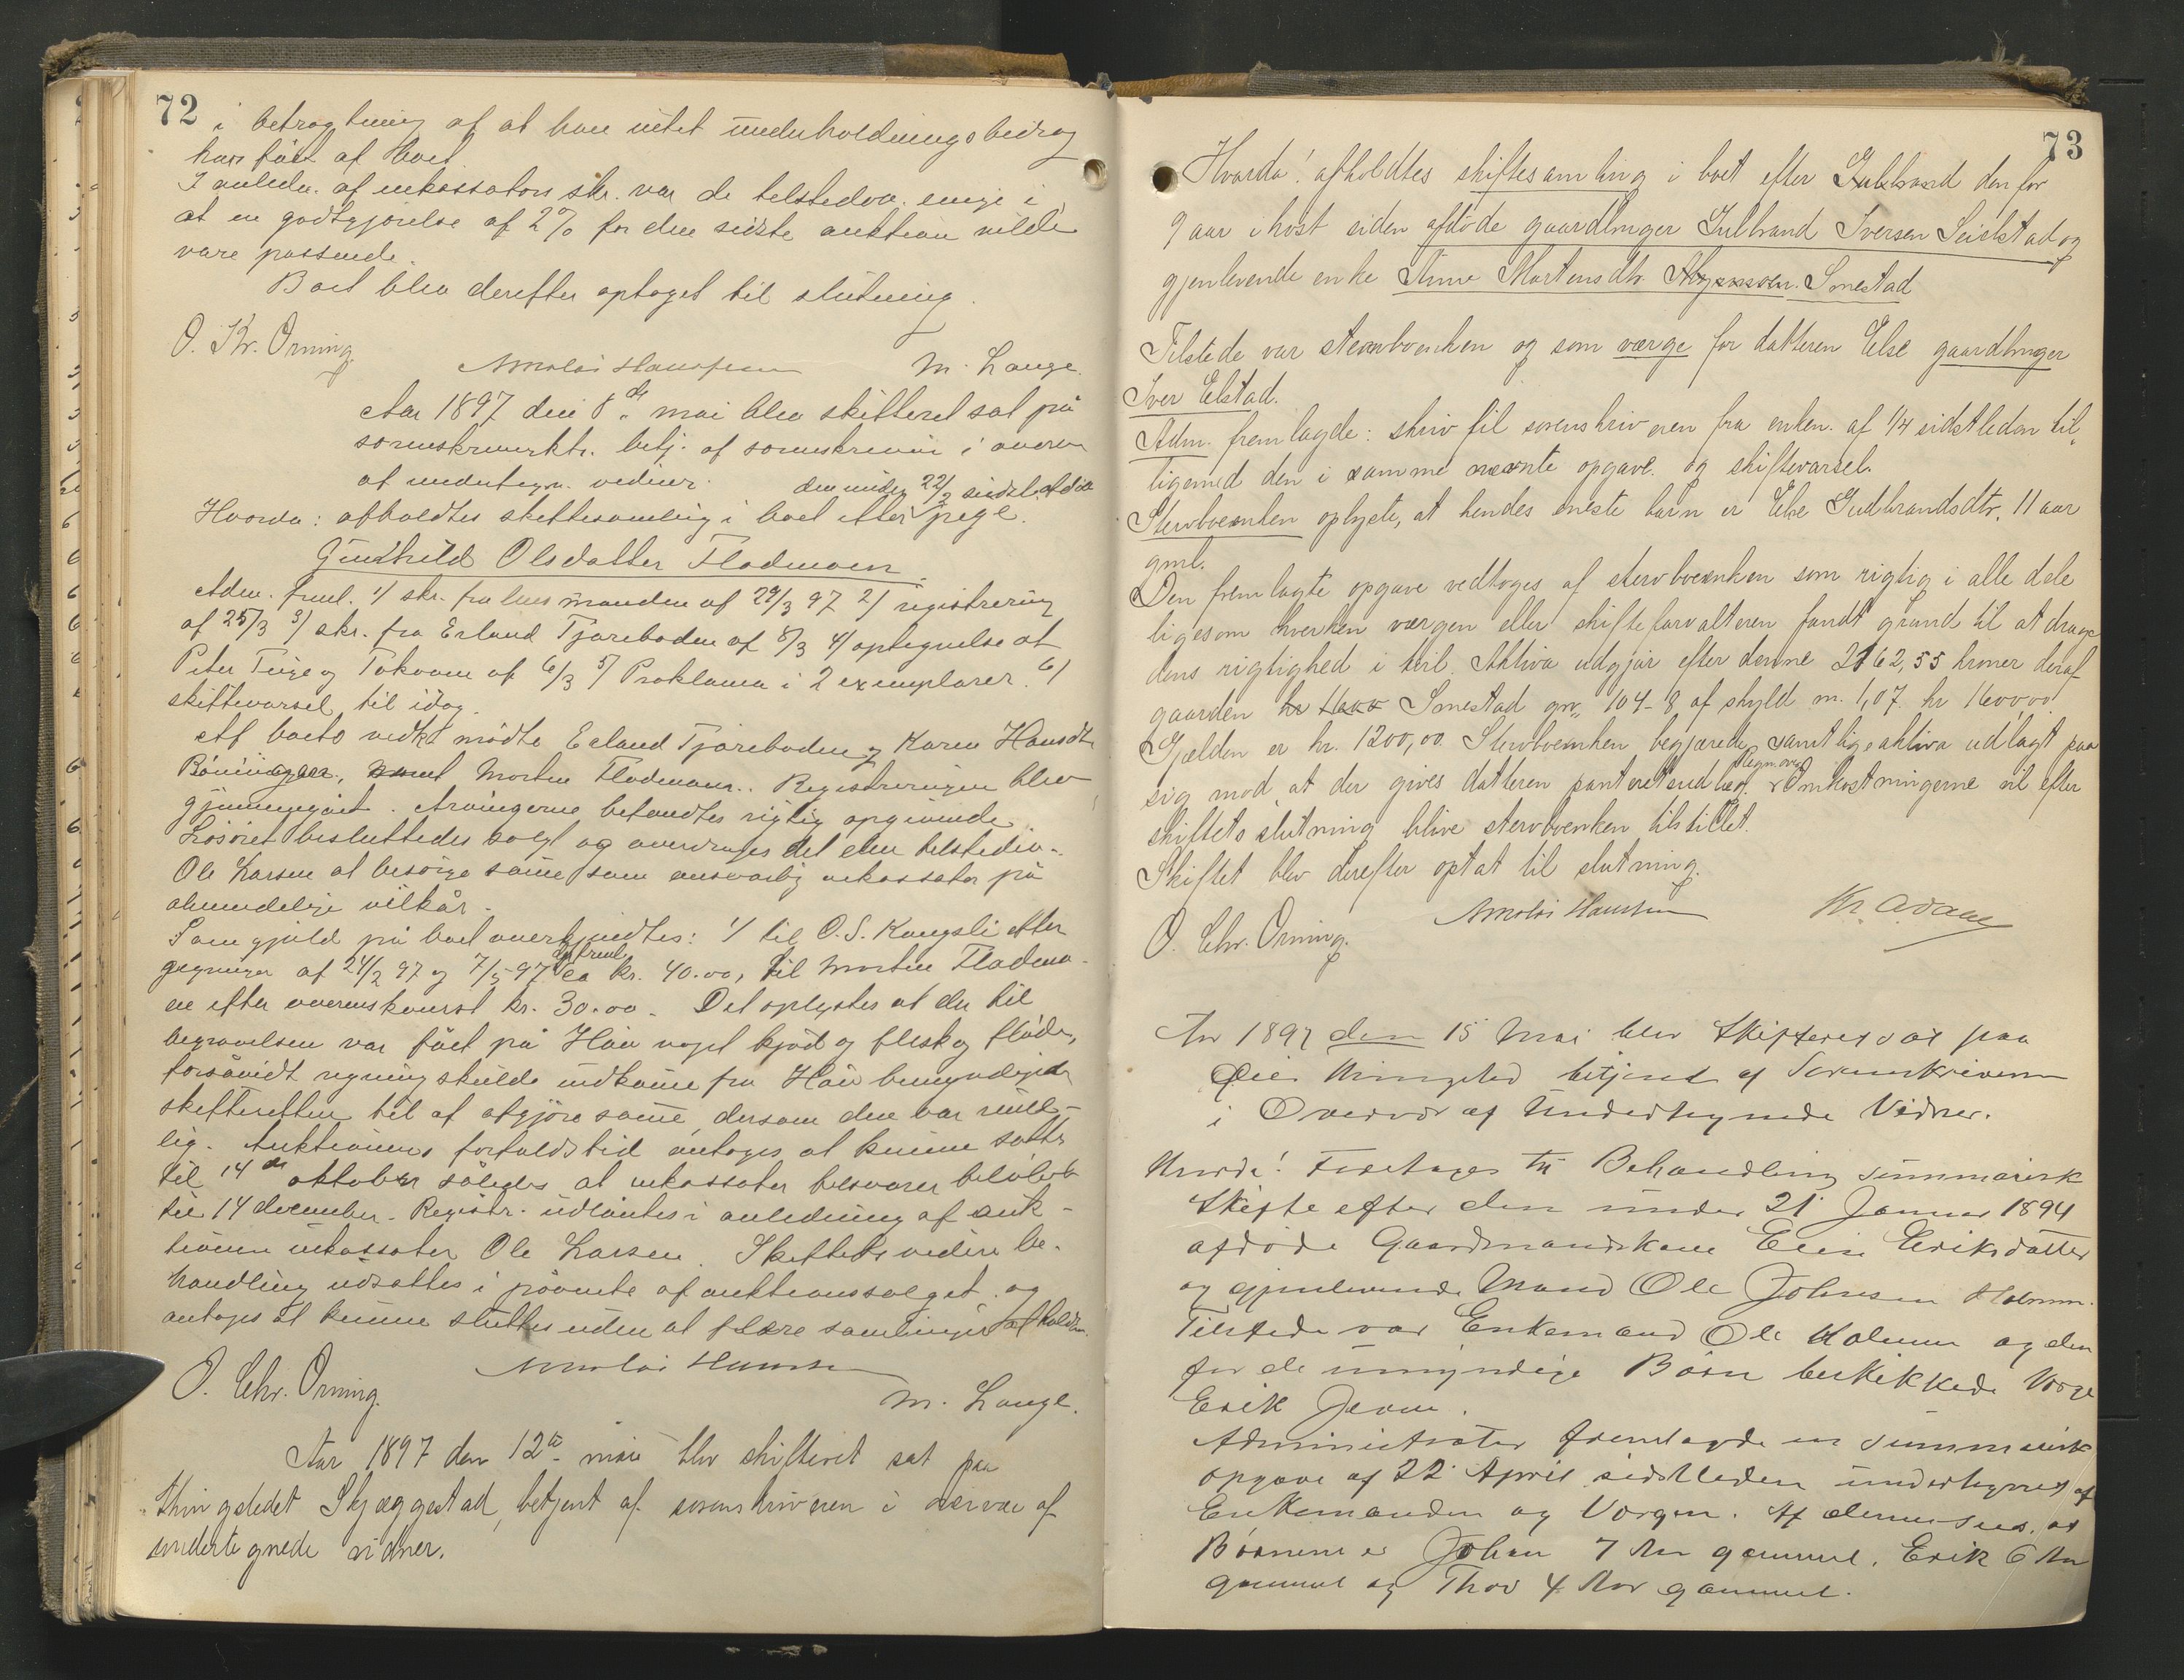 72
i betragtning af at hun intet underholdningsbidrag
har fået af boet.
I anledn. af inkassators skr. var de tilstedev. enige i,
at en godtgjörelse af 2% for den sidste auktion vilde
være passende.
Boet blev derefter optaget til slutning.
O. Kr. Orning
Nikolai Hanssen
M. Lange.
Aar 1897 den 8de mai blev skifteret sat på
sorenskriverktr. betj. af sorenskriveren i overv.
af undertegn. vidner.
den under 22/2 sidstl. afdöde
Hvorda: afholdtes skiftesamling i boet efter pige.
Gunhild Olsdatter Flodmoen
Adm. freml. 1/ skr. fra lensmanden af 29/3 97 2/ registrering
af 25/3 3/ skr. fra Erland Tjæreboden af 8/3 4/ optegnelse af
Peter Teige og Tokvam af 6/3 5/ Proklama i 2 exemplarer. 6/
skiftevarsel til idag.
Af boets vedk. mödte Erland Tjæreboden og Karen Hansdtr.
Morten Flodmoen. Registreringen blev
gjennemgået. Arvingerne befandtes rigtig opgivende.
Lösöret besluttedes solgt og overdroges det den tilstedev.
Ole Larsen at besörge samme som ansvarlig inkassator på
almindelige vilkår.
Som gjæld på boet anerkjendtes: 1/ til O. S. Kongsli efter
regninger af 24/2 97 og 7/5 97 ca kr. 40.00, til Morten Flodmo-
en efter overenskomst kr. 30.00. Det oplystes at der til
begravelsen var fået på Haw noget kjöd og flesk og flöde,
forsåvidt regning skulde indkomme fra Haw bemyndiges
skifteretten til at afgjöre samme, dersom den var rime-
lig. Auktionens forfaldstid antoges at kunne sættes
til 14de oktober således at inkassator tilsvarer belöbet
til 14 december. Registr. udlåntes i anledning af auk-
tionen inkassator Ole Larsen. Skiftets videre be-
handling udsattes i påvente af auktionssalget og
antages at kunne sluttes uden at flere samlinger afholdes.
O. Chr. Orning.
Nikolai Hanssen
M. Lange.
Aar 1897 den 12te mai blev skifteret sat paa
thingstedet Skjæggestad, betjent af sorenskriveren i overvær af
undertegnede vidner.
73
Hvorda! afholdtes skiftesamling i boet efter Gulbrand den for
9 aar i höst siden afdöde gaardbruger Gulbrand Iversen Seielstad og
gjenlevende enke Anne Mortensdtr. Smestad
Tilstede var stervboenken og som værge for datteren Else gaardbruger
Iver Elstad.
Adm. fremlagde: skriv til sorenskriveren fra enken af 1/4 sidstleden til-
ligemed den i samme nævnte opgave og skiftevarsel.
Stervboenken oplyste, at hendes eneste barn er Else Gudbrandsdtr, 11 aar
gml.
Den fremlagte opgave vedtoges af stervboenken som rigtig i alle dele
ligesom hverken værgen eller skifteforvalteren fandt grund til at drage
dens rigtighed i tvil. Aktiva udgjör efter denne 2162,55 kroner deraf
gaarden kr 1600 Smestad gnr. 104-8 af skyld m. 1,07. kr 1600,00.
Gjælden er kr. 1200,00. Stervboenken begjærede samtlige aktiva udlagt paa
sig mod at der gives datteren panteretsudlæg. Omkostningerne vil efter
skiftets slutning blive stervboenken tilstillet.
Skiftet blev derefter optat til slutning.
O. Chr. Orning.
Nikolai Hanssen
Kr. Aadne
Aar 1897 den 15 Mai blev Skifteret sat paa
Öier Thingsted betjent af Sorenskriveren
i Overvær af Undertegnede Vidner.
Hvorda! Foretoges til Behandling summarisk
Skifte efter den under 21 Januar 1894
afdöde Gaardmandskone Eline Eriksdatter
og gjenlevende Mand Ole Johnsen Holmen.
Tilstede var Enkemand Ole Holmen og den
for de umyndige Börn beskikkede Værge
Erik
Administrator fremlagde en summarisk
opgave af 22 April sidstleden undertegnet af
Enkemanden og Værgen. Af denne sees, at
Börnene er Johan 7 Aar gammel, Erik 6 Aar
gammel og Thor 4 Aar gammel.